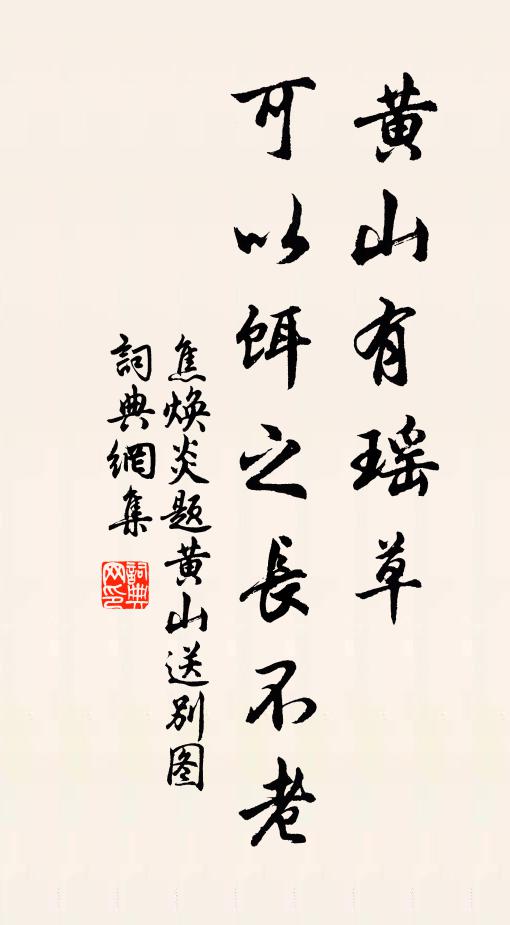 黄山有瑶草
可以餌之長不老
焦焕炎题黄山送别图
詞典網集
詞典网印